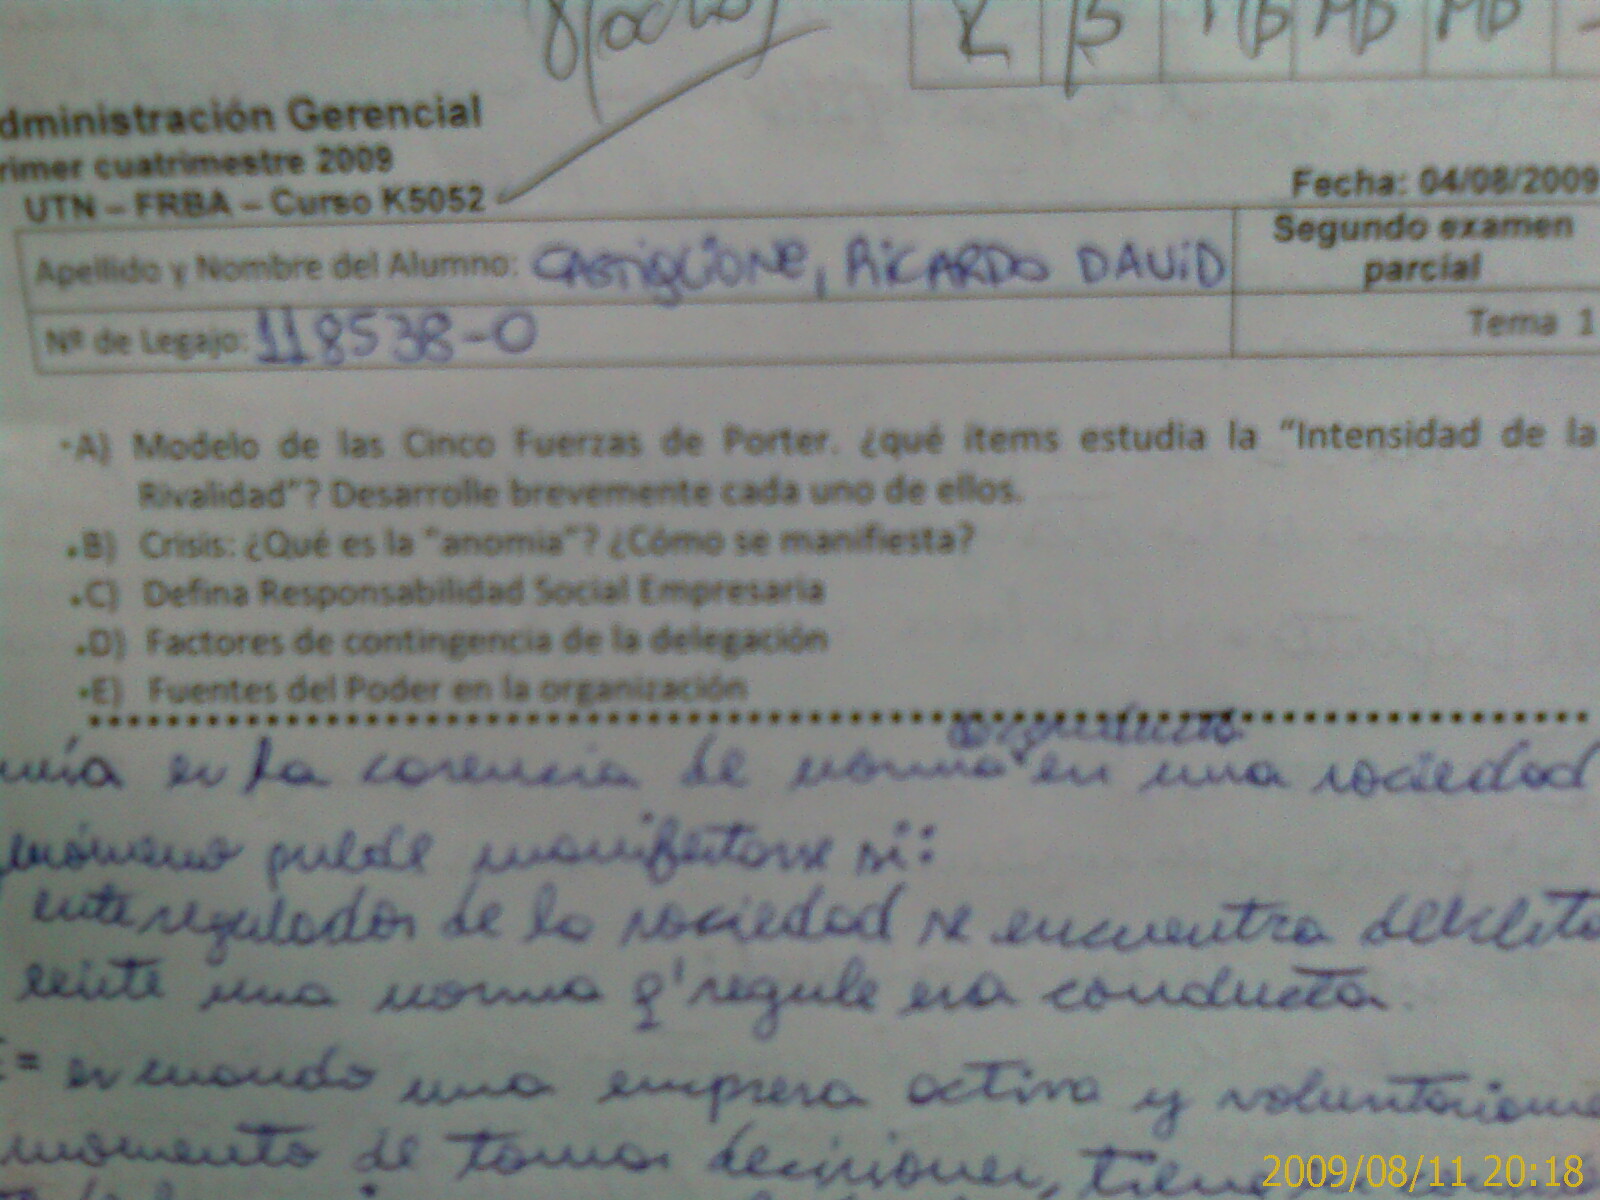 8 (ocho)
R B MB MB MB
dministración Gerencial
rimer cuatrimestre 2009
UTN – FRBA – Curso K5052
Fecha: 04/08/2009
Apellido y Nombre del Alumno: CASTIGLIONE, RICARDO DAVID
Segundo examen
parcial
Nº de Legajo: 118538-0
Tema 1
A) Modelo de las Cinco Fuerzas de Porter. ¿qué ítems estudia la "Intensidad de la
Rivalidad"? Desarrolle brevemente cada uno de ellos.
B) Crisis: ¿Qué es la "anomia"? ¿Cómo se manifiesta?
C) Defina Responsabilidad Social Empresaria
D) Factores de contingencia de la delegación
E) Fuentes del Poder en la organización
o conducta
mía es la carencia de norma en una sociedad
enómeno puede manifestarse si:
ente regulador de la sociedad se encuentra
existe una norma q' regule esa conducta.
E = es cuando una empresa activa y voluntariame
momento de tomar decisiones, tiene
2009/08/11 20:18